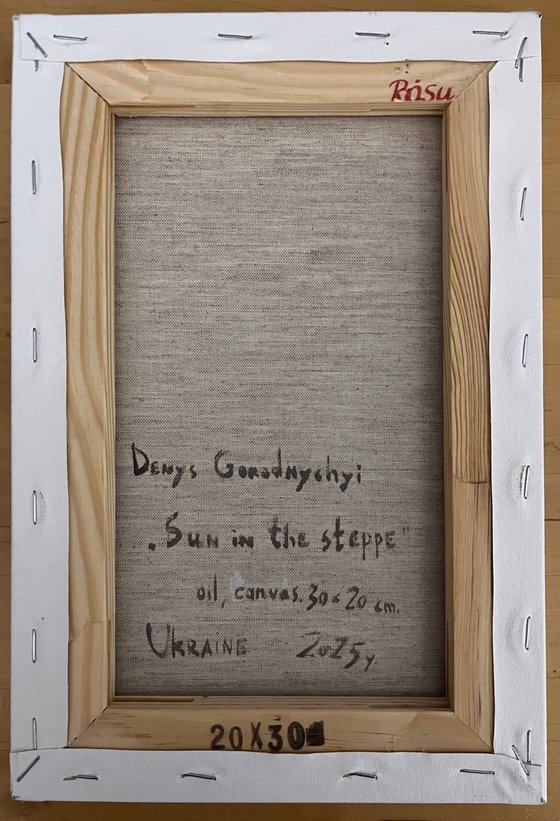 Rosa
Denys Gorodnychyi
„Sun in the steppe"
oil, canvas. 30x20 cm.
UKRAINE 2025y
20X30